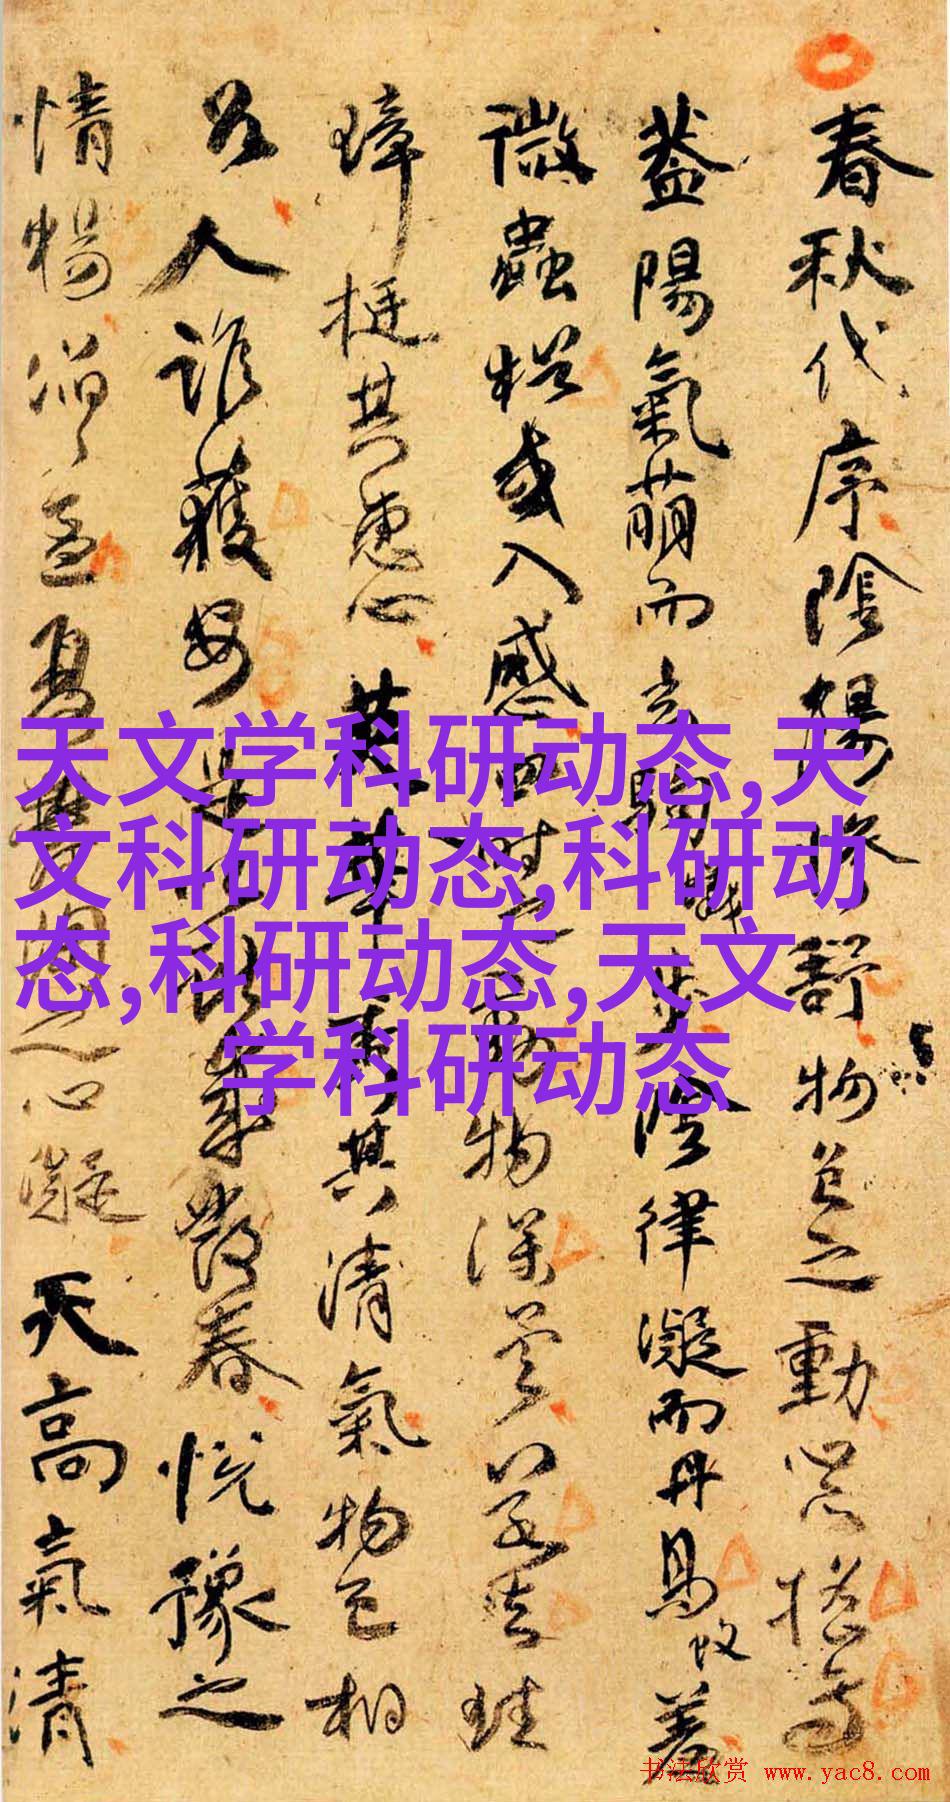 春秋代序陰陽慘舒物色之動心亦搖焉
蓋陽氣萌而玄駒步陰律凝而丹鳥羞
微蟲猶或入感四時之動物深矣若夫珪
璋挺其惠心英華秀其清氣物色相
召人誰獲安是以獻歲發春悅豫之
情暢滔滔孟夏鬱陶之心凝天高氣清
天文学科研动态,天
文科研动态,科研动
态,科研动态,天文
学科研动态
书法欣赏 www.yac8.com